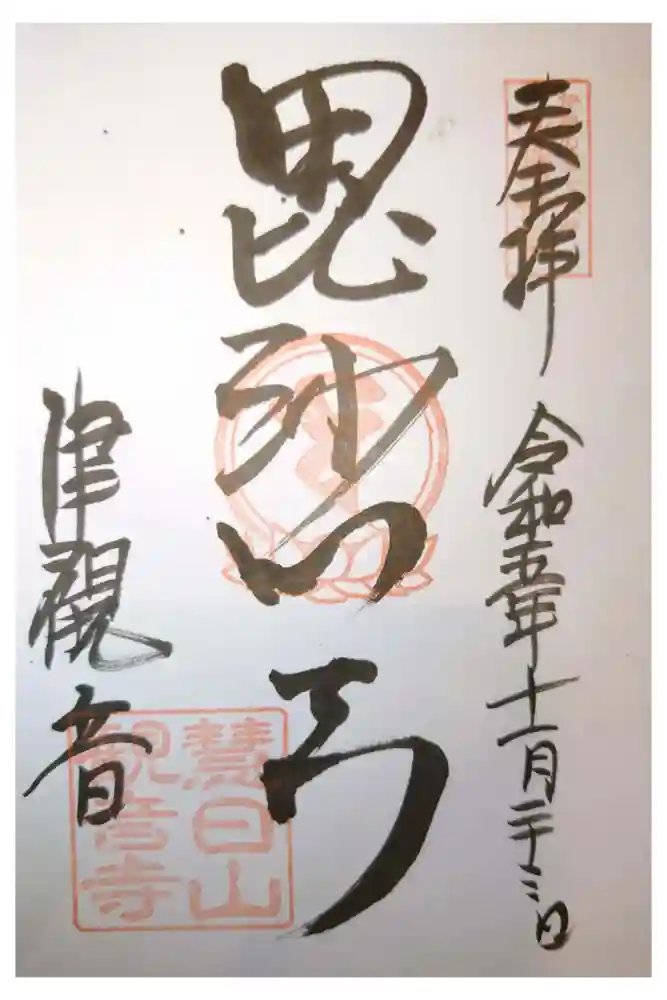 奉拝
令和五年十一月二十三日
毘沙門
津観音
慧日山
観音寺